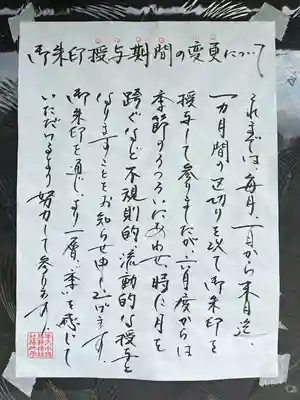 御朱印授与期間の変更について
これまでは、毎月、一日から末日迄、
一カ月間の区切りを以て御朱印を
授与して参りましたが、六月度からは
季節のうつろいにあわせ、時に月を
跨ぐなど不規則的、流動的な授与と
なりますことをお知らせ申し上げます。
御朱印を通じ、より一層、季いを感じて
いただけるよう努力して参ります。